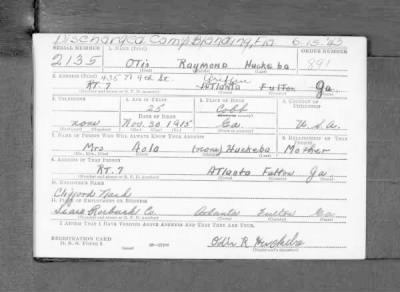 Discharged Camp Blanding, Fla 6-15-'43
SERIAL NUMBER 1. NAME (Print) ORDER NUMBER
2135 Otis Raymond Huckeba 891
(First) (Middle) (Last)
2. ADDRESS (Print) 435 N 9th St. Griffin
RT. 7 Atlanta Fulton Ga
(Town) (County) (State)
3. TELEPHONE 4. AGE IN YEARS 5. PLACE OF BIRTH 6. COUNTRY OF CITIZENSHIP
25 Cobb
DATE OF BIRTH
none Nov. 30 1915 Ga U.S.A.
7. NAME OF PERSON WHO WILL ALWAYS KNOW YOUR ADDRESS 8. RELATIONSHIP OF THAT PERSON
Mrs (none) Huckeba Mother
9. ADDRESS OF THAT PERSON
RT. 7 Atlanta Fulton Ga
10. EMPLOYER'S NAME
Clifford
11. PLACE OF EMPLOYMENT OR BUSINESS
Sears Roebuck Co. Atlanta Fulton Ga
I AFFIRM THAT I HAVE VERIFIED ABOVE ANSWERS AND THAT THEY ARE TRUE.
REGISTRATION CARD
D. S. S. Form 1
Otis R Huckeba